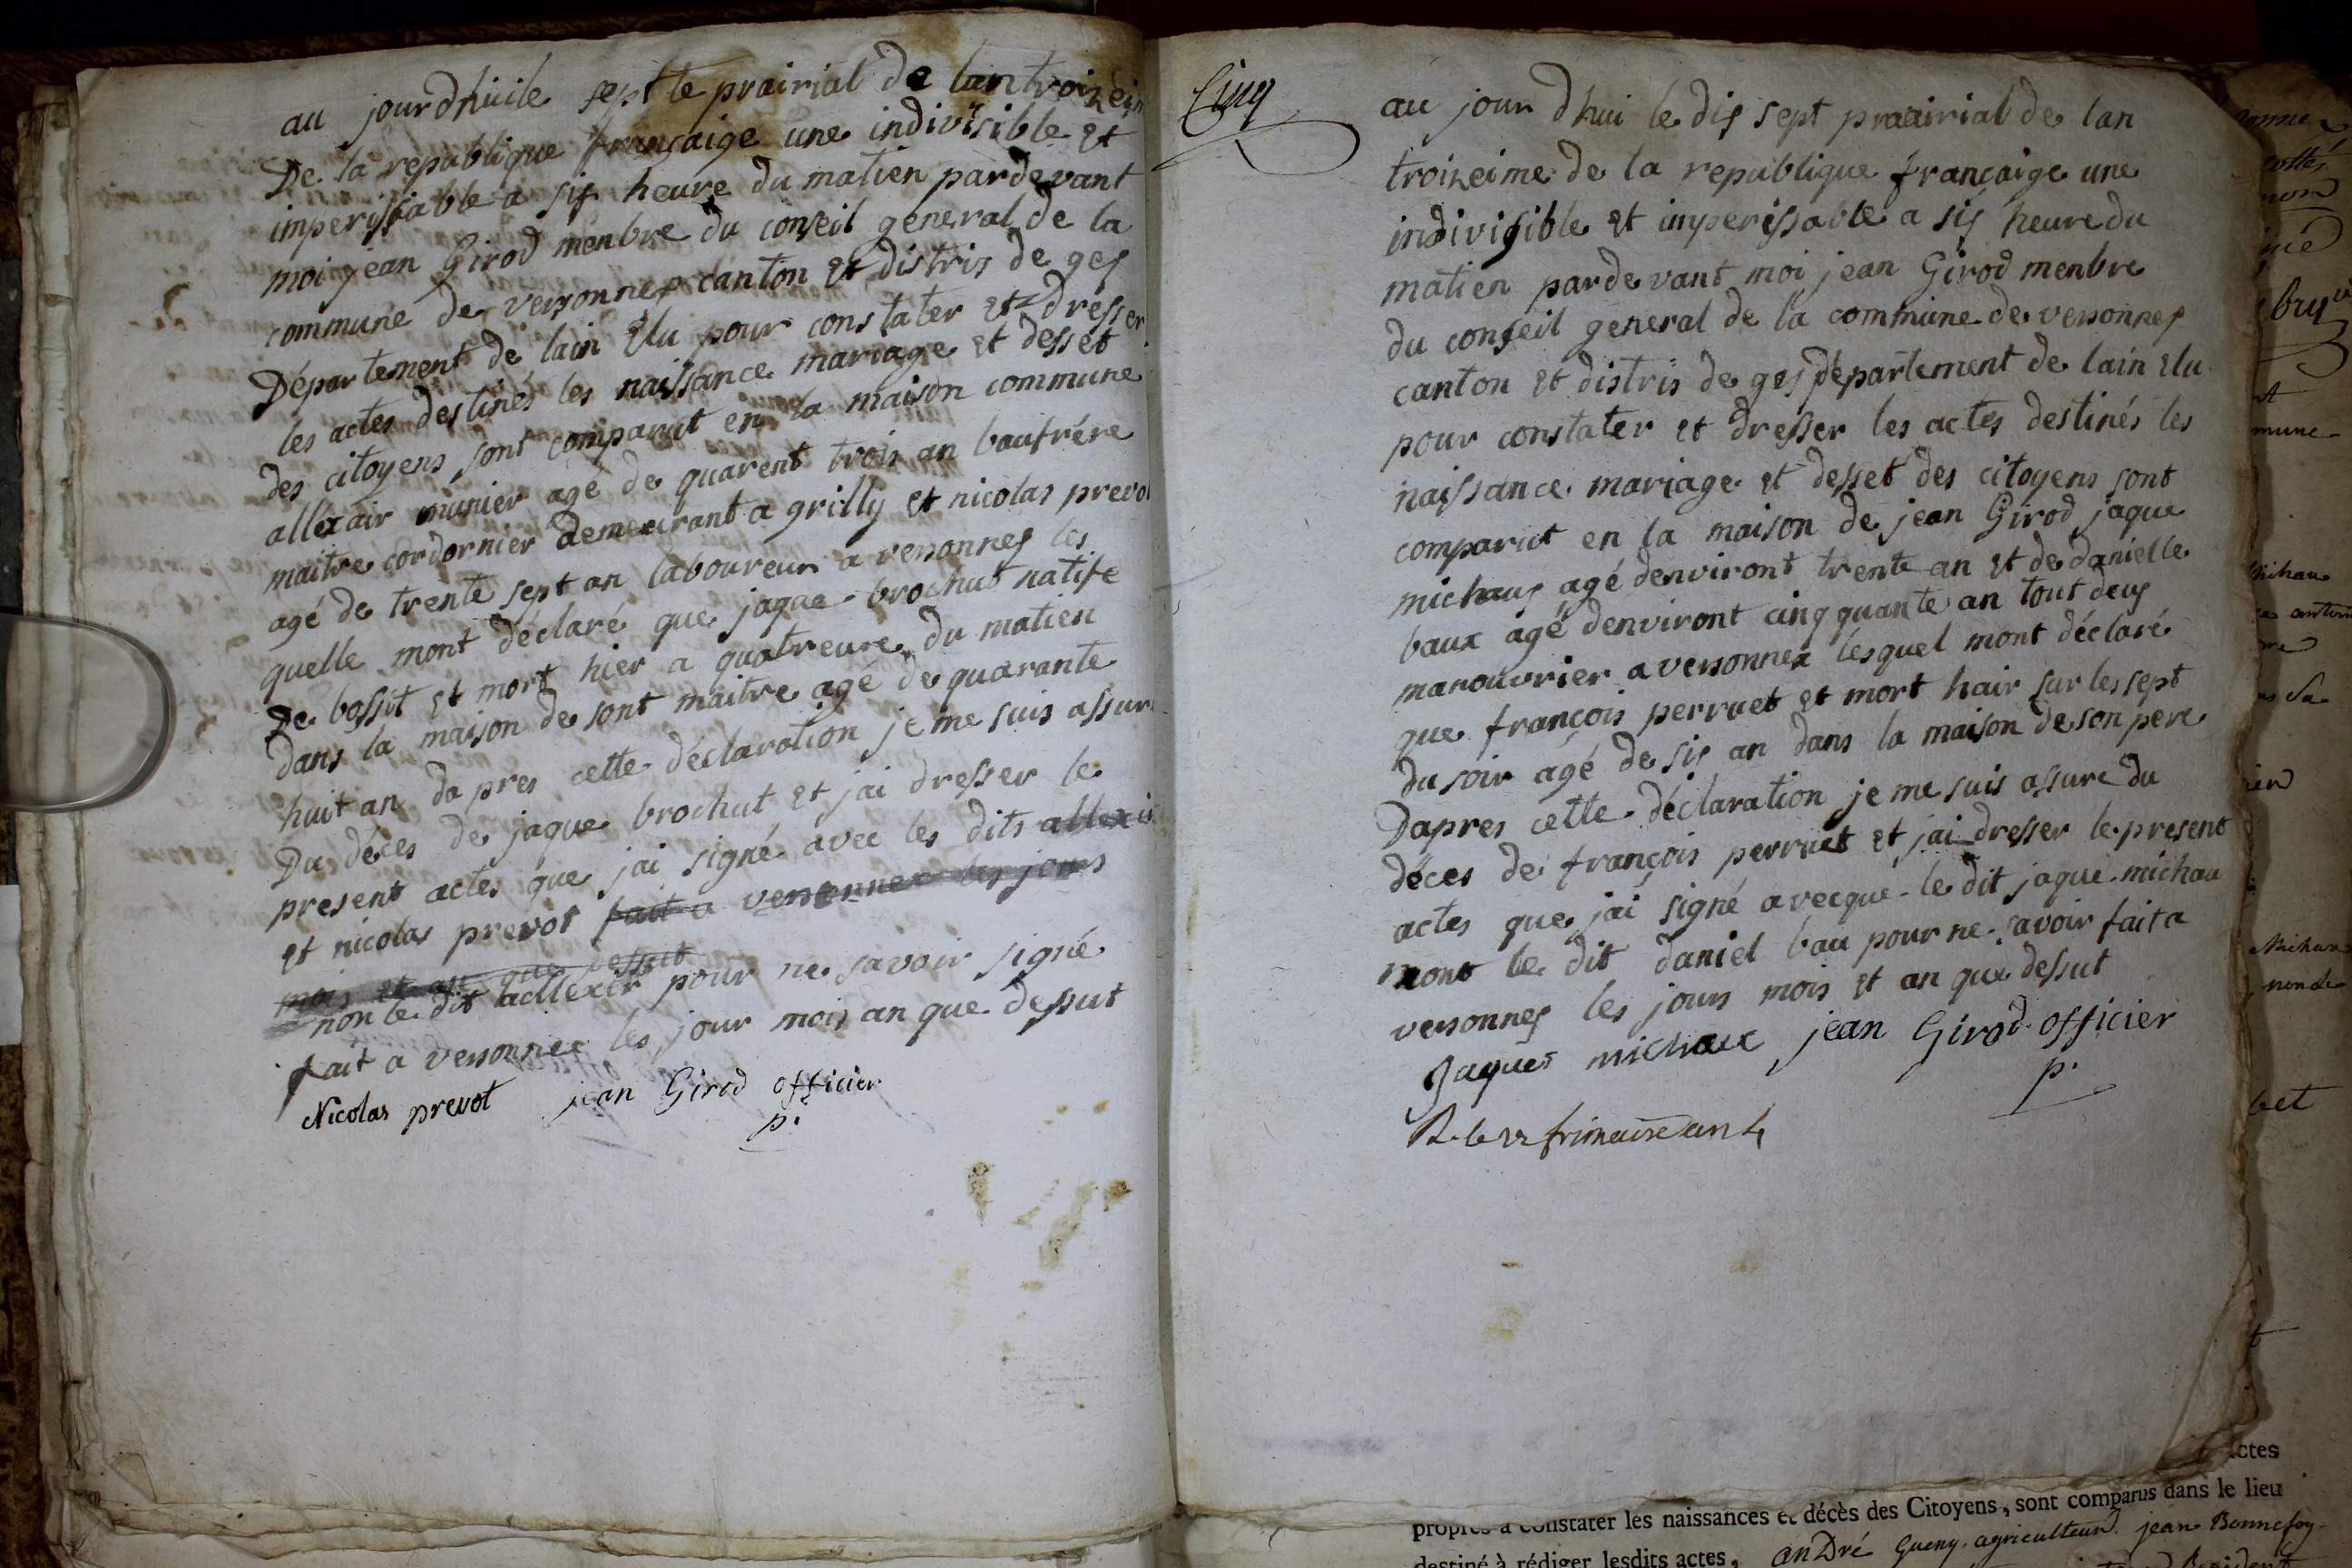 au jourdhuile sept te prairial de lan troizeim
De la republique françaige une indivisible et
imperissiable a sis heure du matien pardevant
moi jean Girod menbre du conseil general de la
commune de versonnex canton et distris de ges
Département de lain Elu pour constater et dresser
les actes destinés les naissance mariage et desset
des citoyens sont comparut en la maison commune
allexair munier agé de quarent trois an baufrére
maitre cordornier demeurant a grilly et nicolas prevot
agé de trente sept an laboureur a versonnes les
quelle mont déclaré que jaque brochut natife
De bossit et mort hier a quatreure du matien
dans la maison de sont maitre agé de quarante
huit an da pres cette déclaration je me suis assur
Du déces de jaque brochut et jai dresser le
present actes que jai signé avec les dits allexis
et nicolas prevot fait a versonnex les jours
mois et an que dessut
non le dit allexir pour ne savoir signé
fait a versonnex les jour mois an que dessut
Nicolas prevot jean Girod officier
p.
Cinq
au jour dhui le dis sept praairial de lan
troizeime de la republique françaige une
indivisible et imperissable a sis heure du
matien pardevant moi jean Girod menbre
du conseil general de la commune de versonnes
canton et distris de ges département de lain Elu
pour constater et dresser les actes destinés les
naissance mariage et desset des citoyens sont
comparut en la maison de jean Girod jaque
michaus agé denviront trente an et de danielle
baux agé denviront cinqquante an tout deus
manouvrier a versonnex lesquel mont déclaré
que françois perruet et mort hair sur les sept
du soir agé de sis an dans la maison de son pere
Dapres cette déclaration je me suis assure du
déces de françois perruet et jai dresser le present
actes que jai signé avecque le dit jaque michau
mont le dit daniel bau pour ne savoir fait a
versonnes les jours mois et an que dessut
Jaques michaux jean Girod officier
p.
R. le 22 frimaire an 4
actes
propres à constater les naissances et décès des Citoyens, sont comparus dans le lieu
destiné à rédiger lesdits actes, anDré Gueny agriculteur jean Bonnefoy